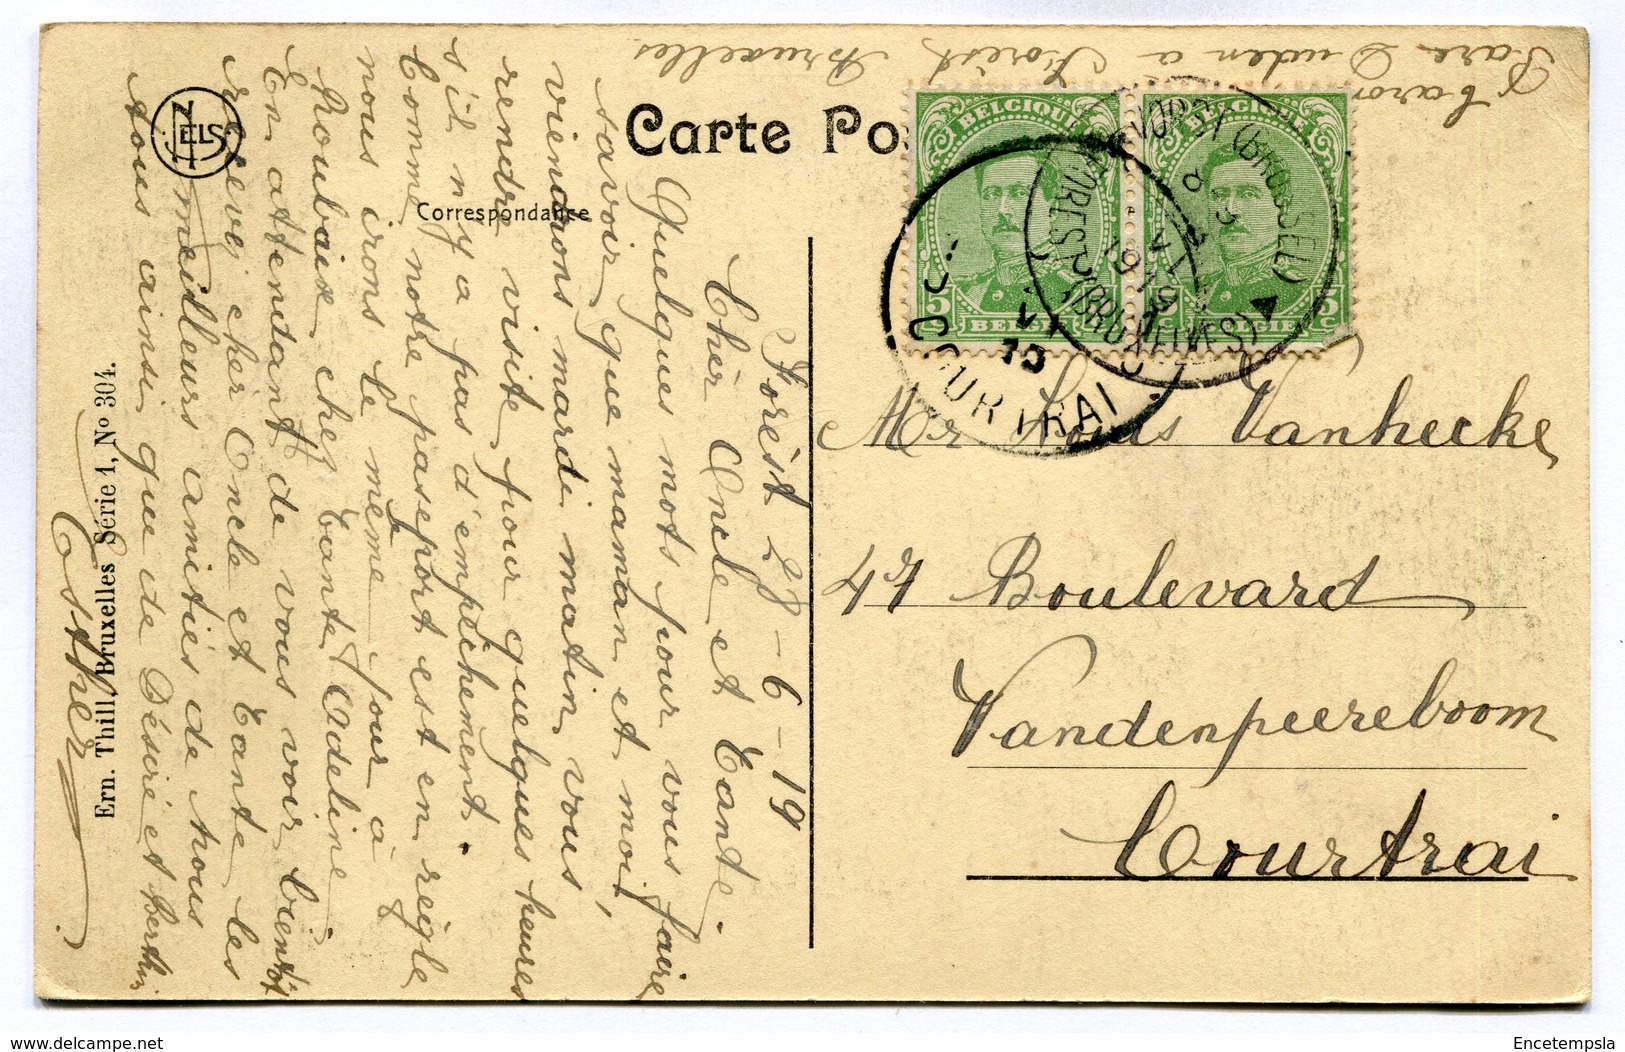 Parc Duden à Forêst, Bruxelles
Carte Po
Correspondance
NELS
Ern. Thill, Bruxelles Série 1, No 304.
BELGIQUE
BELGIQUE
5 c
BELGIË
BELGIË
5 c
VORST (BRUSSEL)
FOREST (BRUXELLES)
COURTRAI
Forêst 28-6-19
Chèr Oncle et Tante.
Quelques mots pour vous faire
savoir, que maman et moi,
viendrons mardi matin, vous
rendre visite, pour quelques heures
s'il n'y a pas d'empêchement.
Comme notre passeport est en règle
nous irons le même jour à
Roubaix, chez tante Adeline
En attendant de vous voir bientôt
recevez chér Oncle et Tante les
meilleurs amitiés de nous
tous ainsi que de Désiré et Bertha
Esther
Mr Louis Vanhecke
47 Boulevard
Vandenpeereboom
Courtrai
www.delcampe.net
Encetempsla